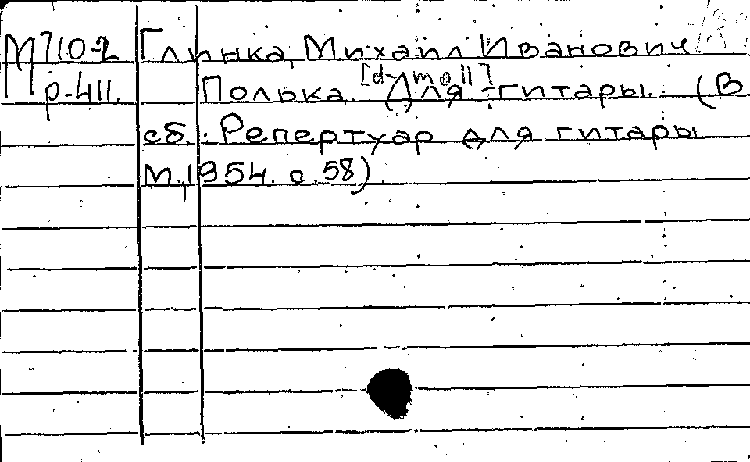 М710-2 Глинка, Михаил Иванович
Р-411. Полька [d-moll] Для гитары. (В
сб.: Репертуар для гитары
М., 1954. с. 58).